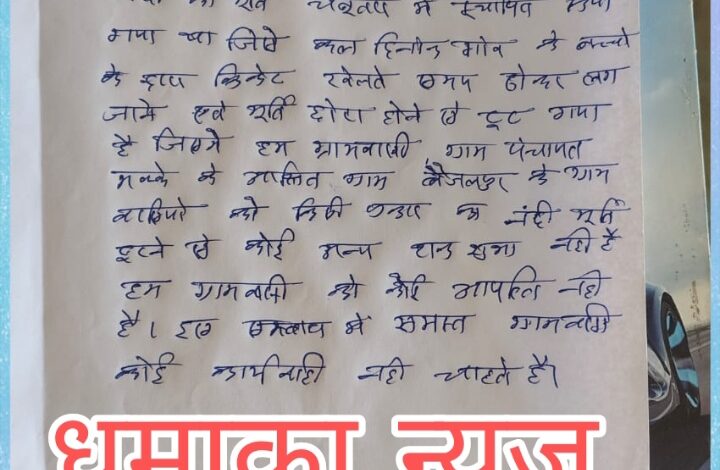 चबूतरा में स्थापित किया
गया था जिसे कल दिनांक गांव के बच्चों
के द्वारा क्रिकेट खेलते समय ठोकर लग
जाने एवं मूर्ति छोटा होने से टूट गया
है जिसमें हम ग्रामवासी, ग्राम पंचायत
के आश्रित ग्राम बैजलपुर के ग्राम
वासियों को किसी प्रकार का नंही मूर्ति
टूटने से कोई अन्य शक नही है
हम ग्रामवासी को कोई आपत्ति नही
है। इस सम्बन्ध में समस्त ग्रामवासी
कोई कार्यवाही नही चाहते है।
धमाका न्यूज